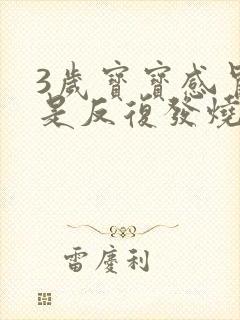 3歲寶寶感冒
是反復發燒
雷慶利